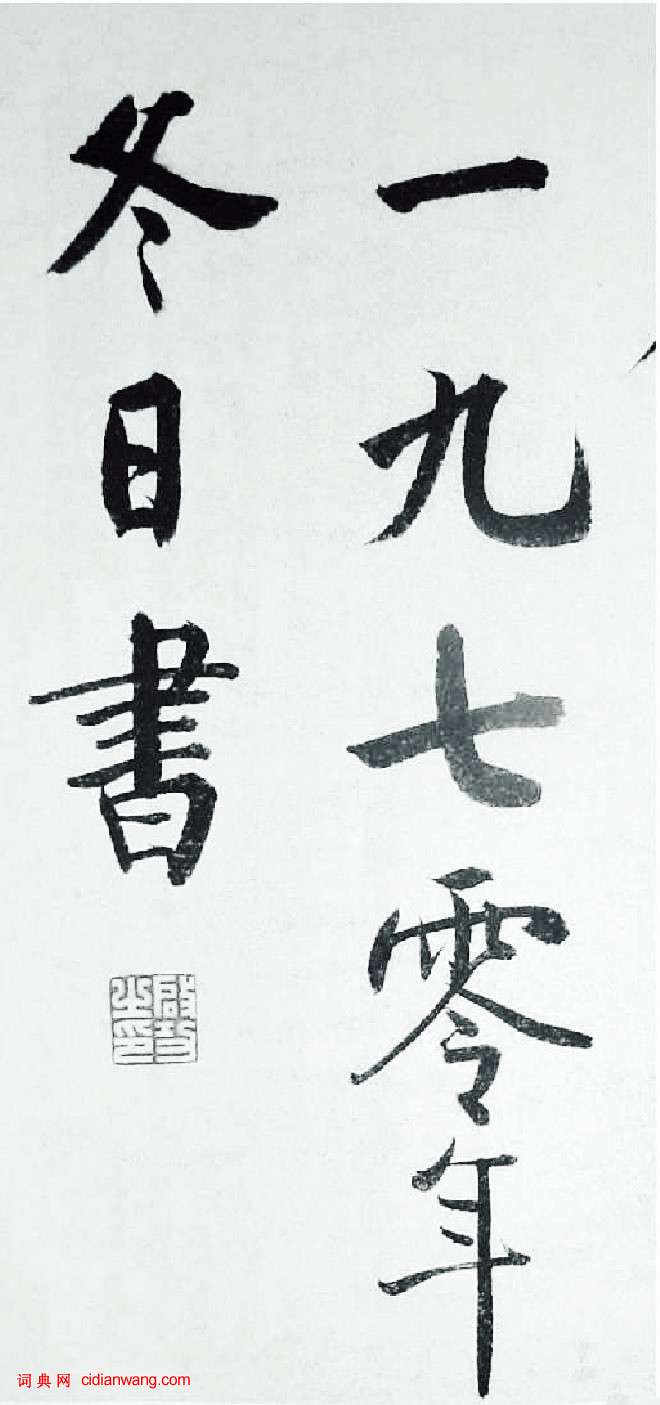 一九七零年
冬日書
啟功之印
词典网 cidianwang.com